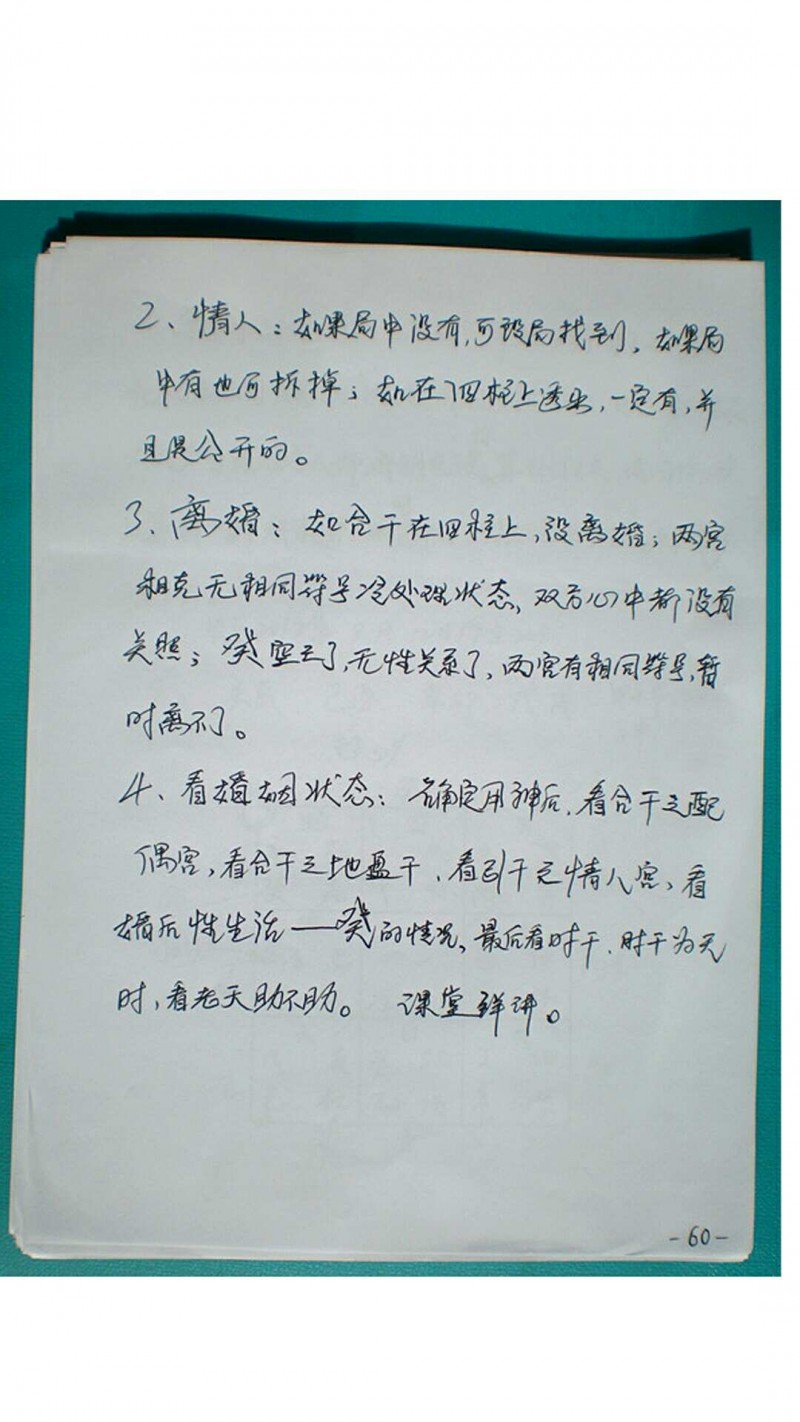 2、情人：如果局中没有，可设局找到，如果局
中有也可拆掉；如在四柱上透出，一定有，并
且是公开的。
3、离婚：如合干在四柱上，没离婚；两宫
相克无相同符号冷处理状态，双方心中都没有
关照；癸空亡了，无性关系了，两宫有相同符号，暂
时离不了。
4、看婚姻状态：确定用神后，看合干之配
偶宫，看合干之地盘干，看引干之情人宫，看
婚后性生活——癸的情况，最后看时干，时干为天
时，看老天助不助。 课堂详讲。
-60-